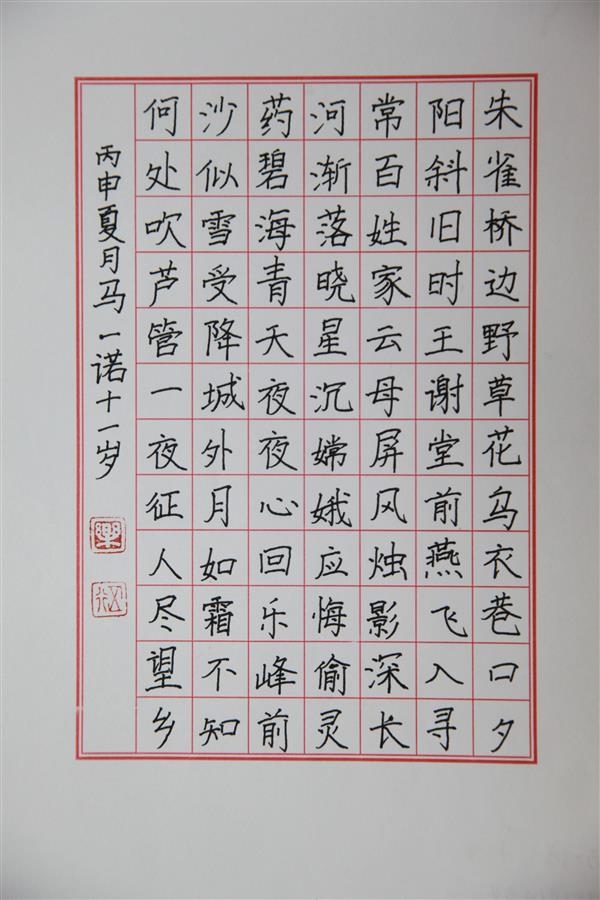 朱雀桥边野草花乌衣巷口夕
阳斜旧时王谢堂前燕飞入寻
常百姓家云母屏风烛影深长
河渐落晓星沉嫦娥应悔偷灵
药碧海青天夜夜心回乐峰前
沙似雪受降城外月如霜不知
何处吹芦管一夜征人尽望乡
丙申夏月马一诺十一岁